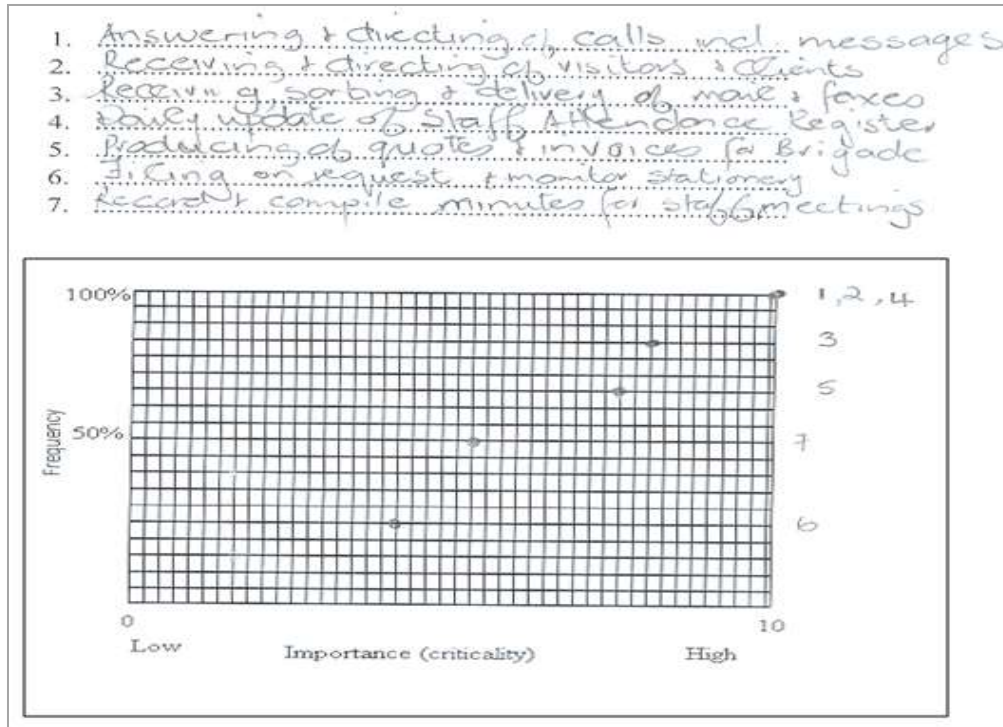 1. Answering & directing of calls incl. messages
2. Receiving & directing of visitors & clients
3. Receiving, sorting & delivery of mail & faxes
4. Daily update of Staff Attendance Register
5. Producing of quotes & invoices for Brigade
6. Filing on request & monitor stationery
7. Record & compile minutes for staff meetings
100% 1, 2, 4
3
5
Frequency
50% 7
6
0 10
Low Importance (criticality) High